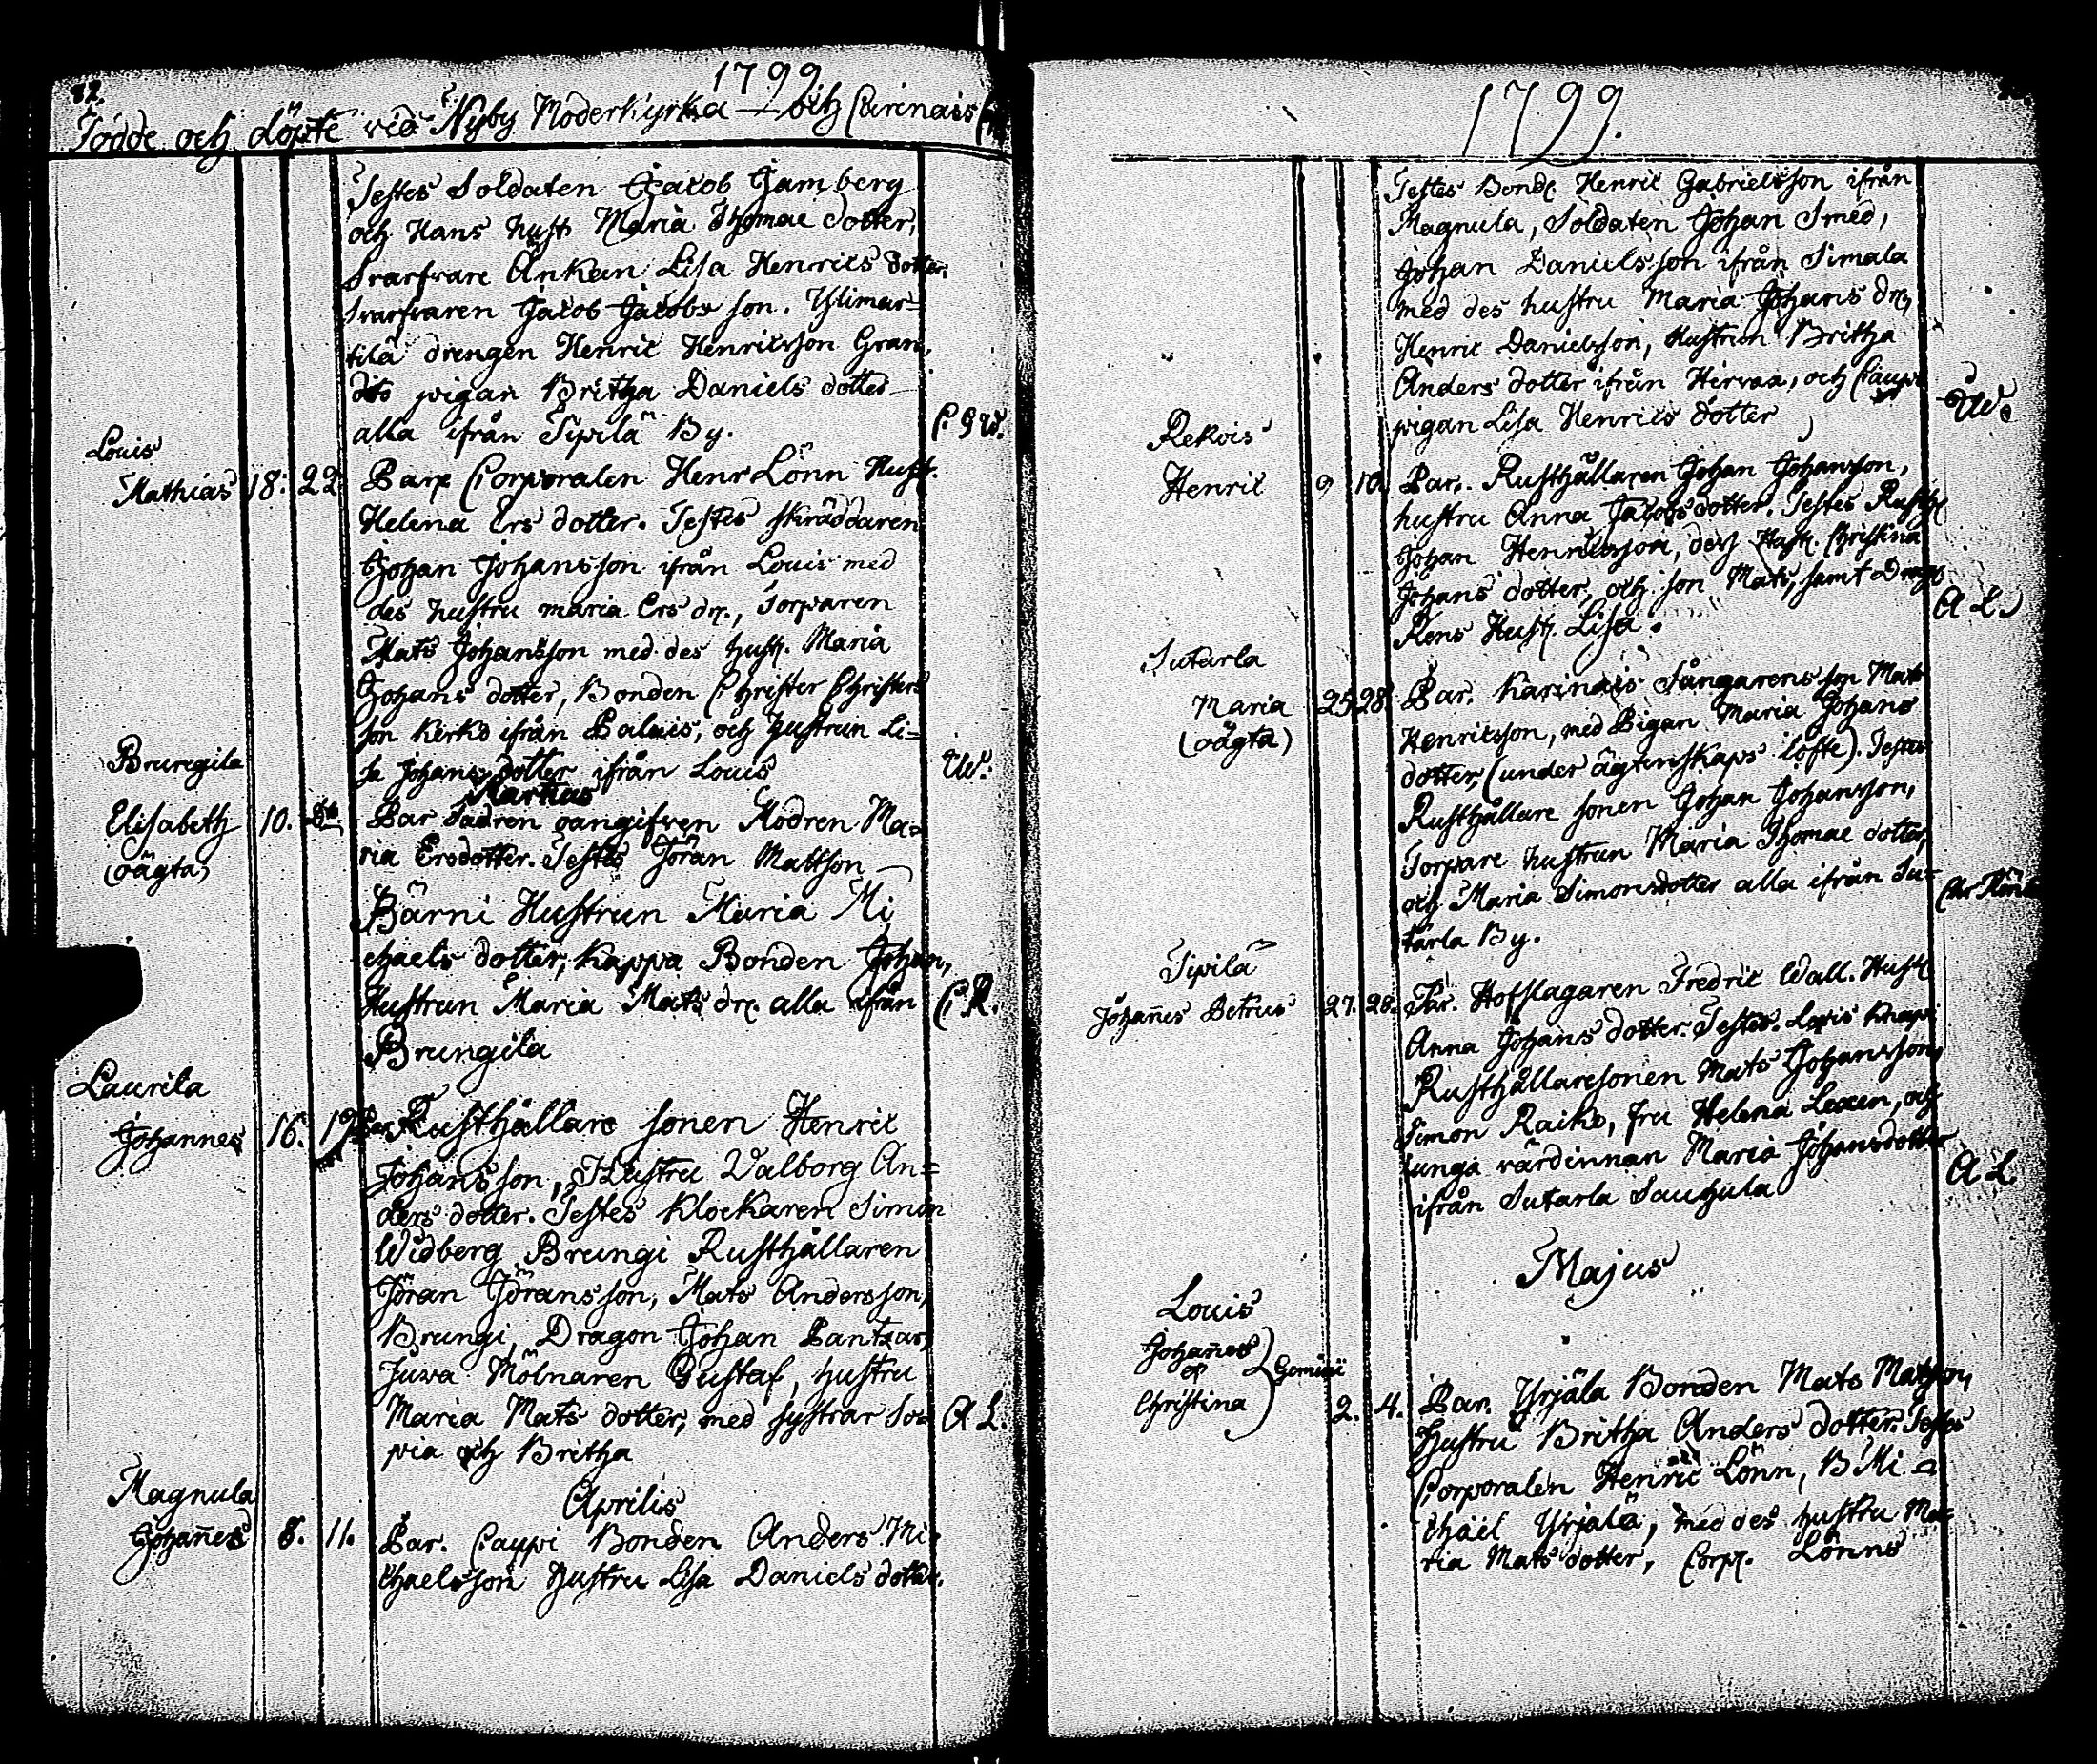 82.
1799
Födde och döpte vid Nyby Moderkyrka och Carinais
Testes Soldaten Jacob Hamberg
och Hans hust Maria Thomae dotter,
Svarfvare Änkan Lisa Henrics dotter.
Svarfvaren Jacob Jacobs son. Ylimar=
tila drengen Henric Henricsson Gran,
dito pigan Britha Daniels dotter
alla ifrån Sipilä By.
Louis
Mathias 18. 22. Par Corporalen Henr Lönn Hust.
Helena Ers dotter. Testes Skräddaren
Johan Johansson ifrån Louis med
des hustru maria Ers dr., Torparen
Mats Johansson med des hust. Maria
Johans dotter, Bonden Christer Christers
son Kerko ifrån Palais, och hustrun Li=
sa Johans dotter ifrån Louis W.
Martius
Brungila
Elisabeth 10. Par Fadren oangifven Modren Ma=
(oägta) ria Ersdotter. Testes Jöran Mattson
Bärni Hustrun Maria Mi
chaels dotter, Kappa Bonden Johan,
Hustrun Maria Mats dr. alla ifrån C.R.
Brungila
Laurila
Johannes 16. 19. Par Rusthållare sonen Henric
Johansson, Hustru Valborg An=
ders dotter. Testes Klockaren Simon
Widberg Brungi Rusthållaren
Jöran Jöransson, Mats Andersson,
Brungi, Dragon Johan Pantzar,
Juva Mölnaren Gustaf, hustru
Maria Mats dotter, med systrar So= A L.
pia och Britha
Aprilis
Magnula
Johañes 8. 11. Par. Cauppi Bonden Anders Mi
chaelsson hustru Lisa Daniels dotter.
1799.
Testes Bond. Henric Gabrielsson ifrån
Magnula, Soldaten Johan Smed,
Johan Danielsson ifrån Simala
med des hustru Maria Johans dr,
Henric Danielsson, Hustrun Britha
Anders dotter ifrån Hirvax, och Caupi
pigan Lisa Henrics dotter W.
Rekois
Henric 9 10. Par. Rusthållaren Johan Johansson,
hustru Anna Jacobs dotter. Testes Rusth.
Johan Henricsson, des Hust. Christina
Johans dotter, och son Mats, samt
Rens Hust. Lisa. A L.
Sutarla
Maria 25 28. Par. Karinais Sångarens son Mats
(oägta) Henricsson, med Pigan Maria Johans
dotter, (under ägtenskaps löfte). Testes
Rusthållare sonen Johan Johansson,
Torpare hustrun Maria Thomae dotter,
och Maria Simonsdotter alla ifrån Su=
tarla By.
Sipilä
Johañes Petrus 27. 28. Par. Hofslagaren Fredric Wall. Hust.
Anna Johans dotter. Testes. Lovis
Rusthållaresonen Mats Johansson,
Simon Raiko, fru Helena Lexen, och
unga värdinnan Maria Johansdotter
ifrån Sutarla Sauhula A L.
Majus
Louis
Johañes
&
Christina } Gemini 2. 4. Par. Yrjäla Bonden Mats Matsson,
Hustru Britha Anders dotter. Testes
Corporalen Henric Lönn, B Mi=
chaël Yrjälä, med des hustru Ma=
ria Mats dotter, Corp. Lönns